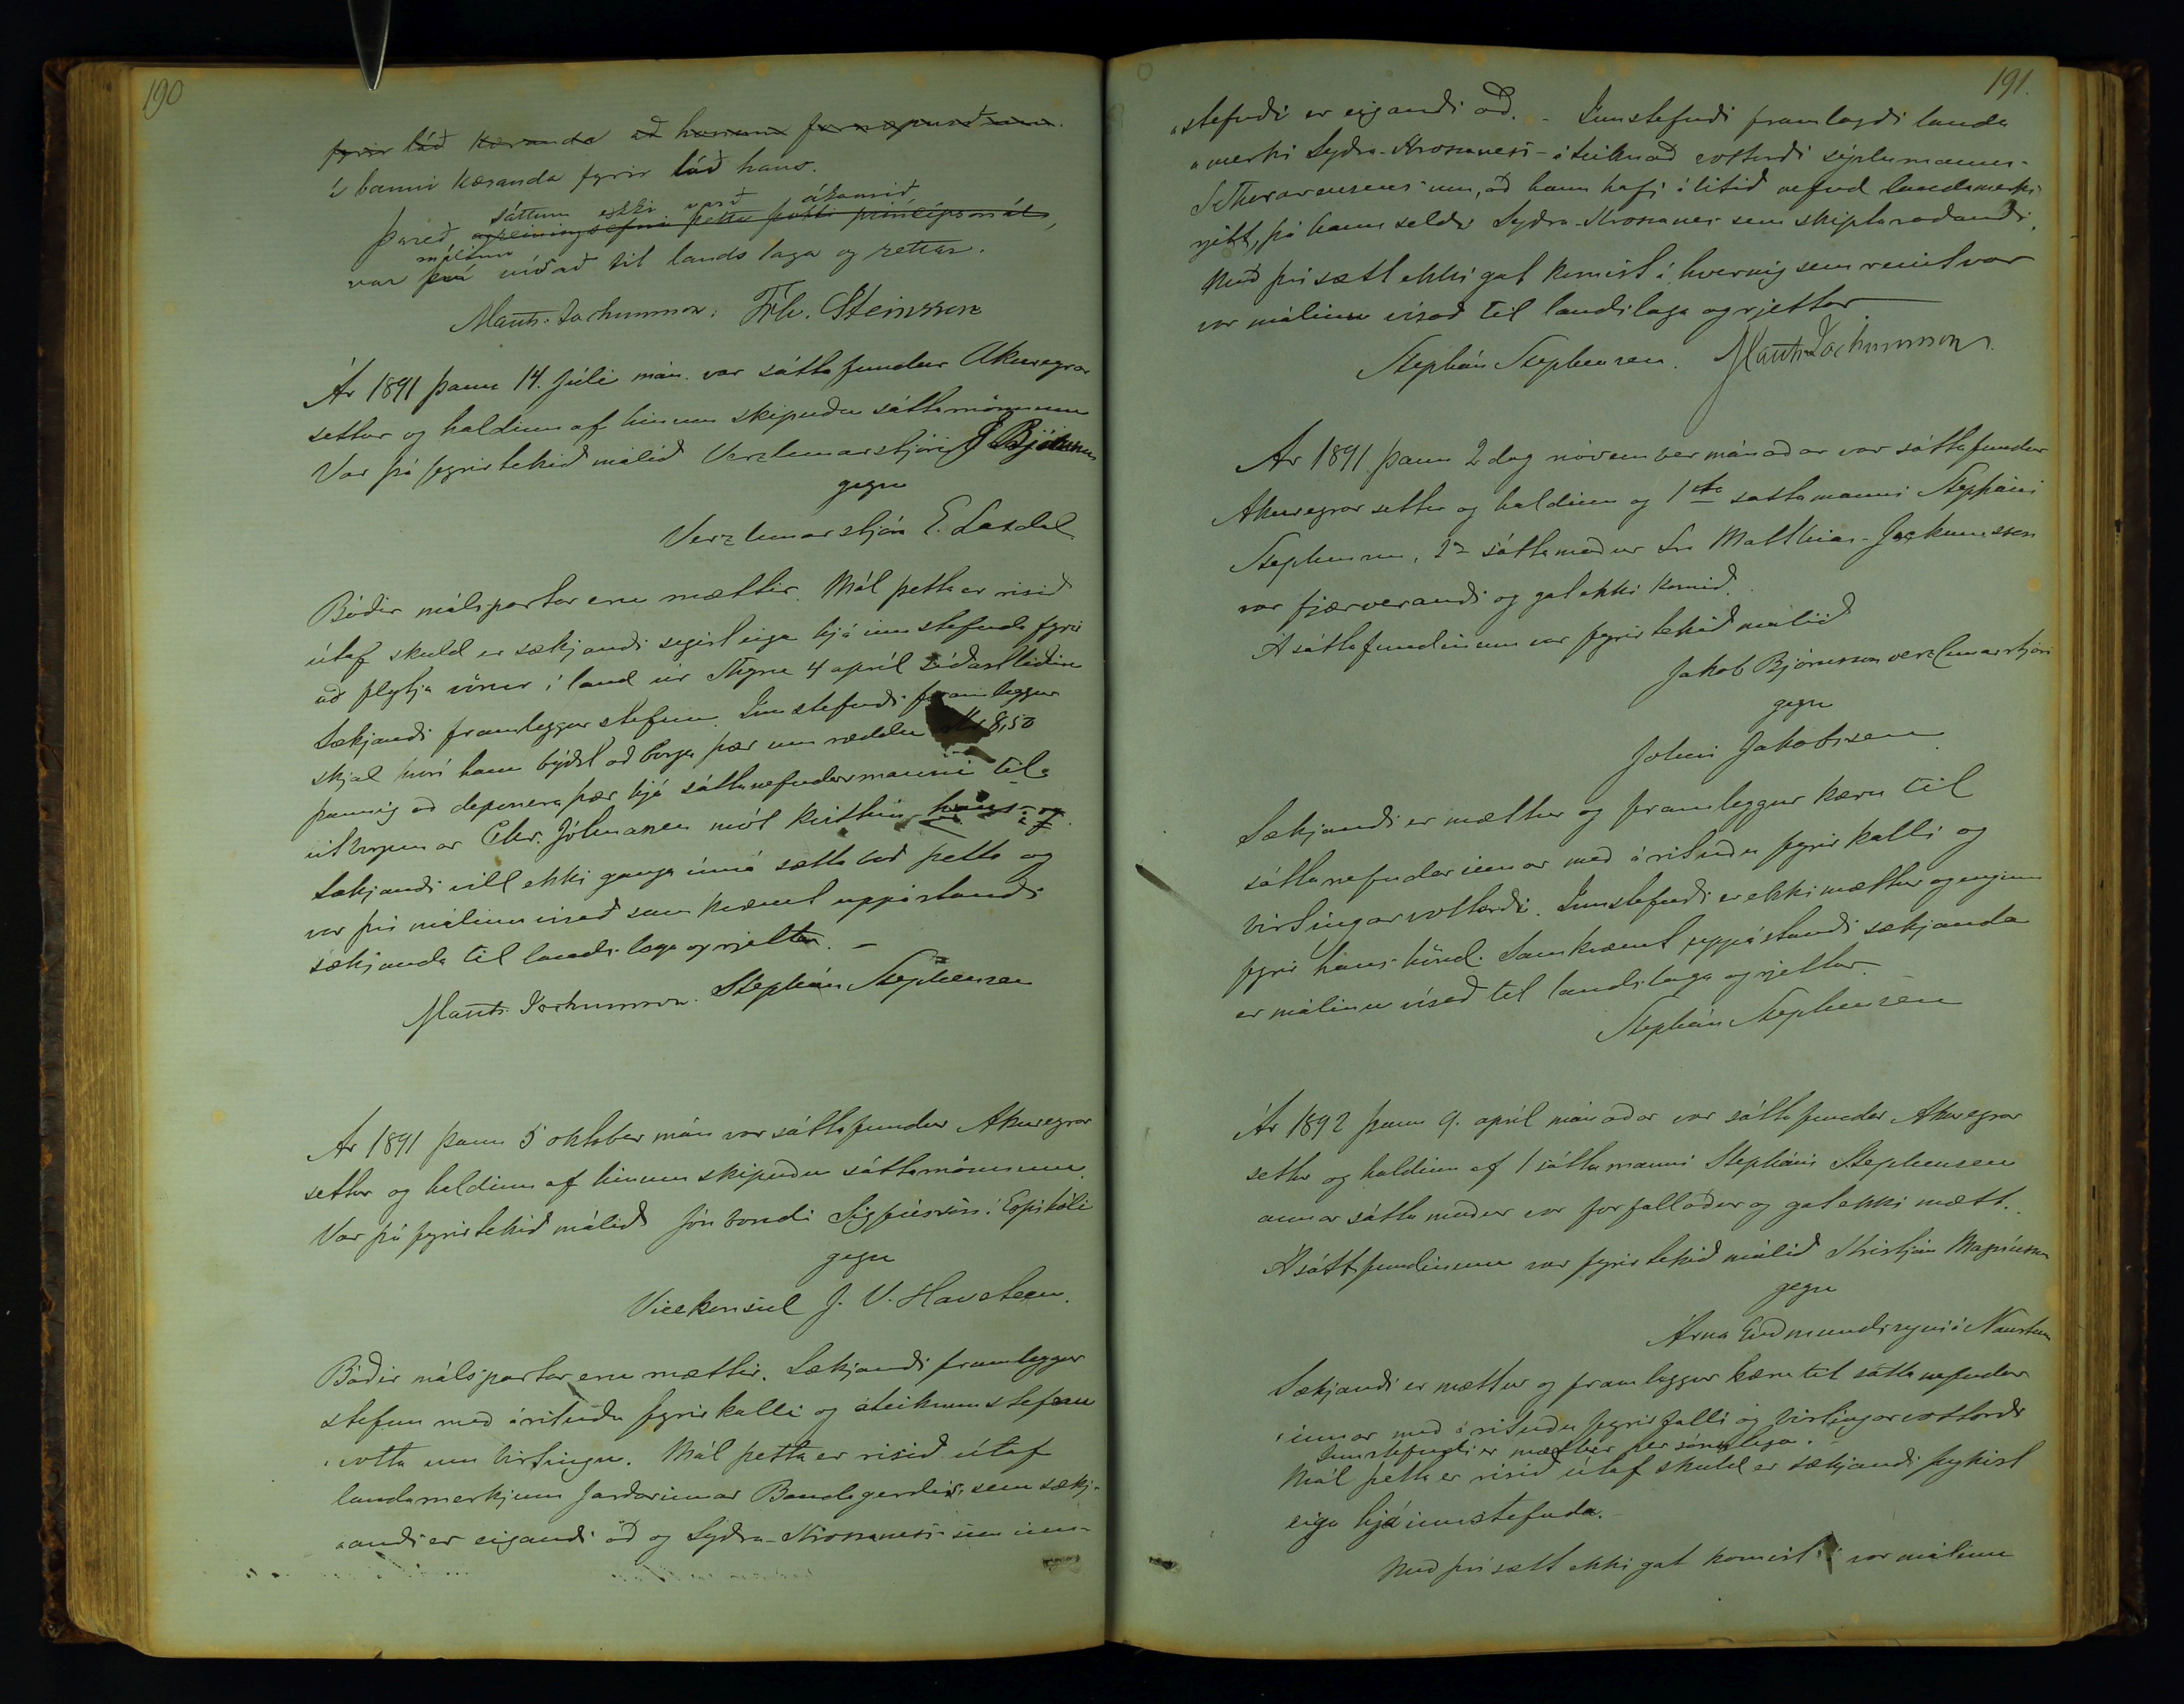 190
fyrir láð kæranda að honum fornspurðum.
í banni kæranda fyrir láð hans.
sáttum ekki varð ákomið
Þareð agreiningsefni þetta þótti principsmál,
málinu
var þá vísað til lands laga og réttar.
Matth. Jochumsson. Frb. Steinsson
Ár 1891 þann 14. Júlí mán. var sáttafundur Akureyrar
settur og haldinn af hinum skipuðu sáttamönnum
Var þá fyrirtekið málið Verzlunarstjóri J Björnsson
gegn
Verzlunarstjóra E. Laxdal.
Báðir málspartar eru mættir. Mál þetta er risið
útaf skuld er sækjandi segist eiga hjá innstefnda fyrir
að flytja vörur í land úr Thyra 4 apríl síðastliðin
Sækjandi framleggur stefnu. Innstefndi framleggur
skjal hvarí hann býðst að borga þær um ræddu 8,50
þannig að deponera þær hjá sáttanefndarmanni til
útborgunar Chr. Jóhnasen mót kvittun hans og
Sækjandi vill ekki ganga inná sætta boð þetta og
var því málinu vísað samkvæmt uppástandi
sækjanda til landslaga og rjettar. –
Matth. Jochumsson. Stephán Stephensen
Ár 1891 þann 5 oktober mán var sáttafundur Akureyrar
settur og haldinn af hinum skipuðu sáttamönnum.
Var þá fyrirtekið málið Jón bondi Sigfússon á Espihóli
gegn
Vicekonsul J. V. Havsteen.
Báðir málspartar eru mættir. Sækjandi framleggur
stefnu með árituðu fyrirkalli og áteiknun stefnu
votta um birtingu. Mál þetta er risið útaf
landamerkjum Jarðarinnar Bandagerðis, sem sækj-
andi er eigandi að og Syðra-Krossaness sem inn-
191.
stefndi er eigandi að. - Innstefndi framlagði landa
merki Syðra-Krossaness - áteiknað vottorði sýslumanns
S. Thorarensens um, að hann hafi álitið nefnd landamerki
rjett, þá hann seldi Syðra-Krossanes sem skiptaráðandi.
Með því sætt ekki gat komist á hvernig sem reint var
var málinu vísað til landslaga og rjettar
Stephán Stephensen. Matth Jochumsson.
Ár 1891 þann 2 dag november mánaðar var sáttafundur
Akureyrar settur og haldinn og 1sta sáttamanni Stepháni
Stephensen, 2r sáttamaður Sra Matthias Jockumsson
var fjærverandi og gat ekki komið.
Á sáttafundinum var fyrirtekið málið
Jakob Björnsson verzlunarstjóri
gegn
Johni Jakobssen
Sækjandi er mættur og framleggur kæru til
sáttanefndarinnar með árituðu fyrirkalli og
birtingarvottorði. Innstefndi er ekki mættur og enginn
fyrir hans hönd. Samkvæmt uppástandi sækjanda
er málinu vísað til landslaga og rjettar. –
Stephán Stephensen
Ár 1892 þann 9. apríl mánaðar var sáttafundur Akureyrar
settur og haldinn af 1 sáttamanni Stepháni Stephensen
annar sáttamaður var forfallaður og gat ekki mætt.
Á sáttafundinum var fyrirtekið málið Kristján Magnússon
gegn
Árna Guðmundssyni á Naustum
Sækjandi er mættur og framleggur kæru til sáttanefndar
innar með árituðu fyrirkalli og birtingarvottorði
Innstefndi er mættur persónulega.
Mál þetta er risið útaf skuld er sækjandi þykist
eiga hjá innstefnda.
Með því sætt ekki gat komist á var málinu